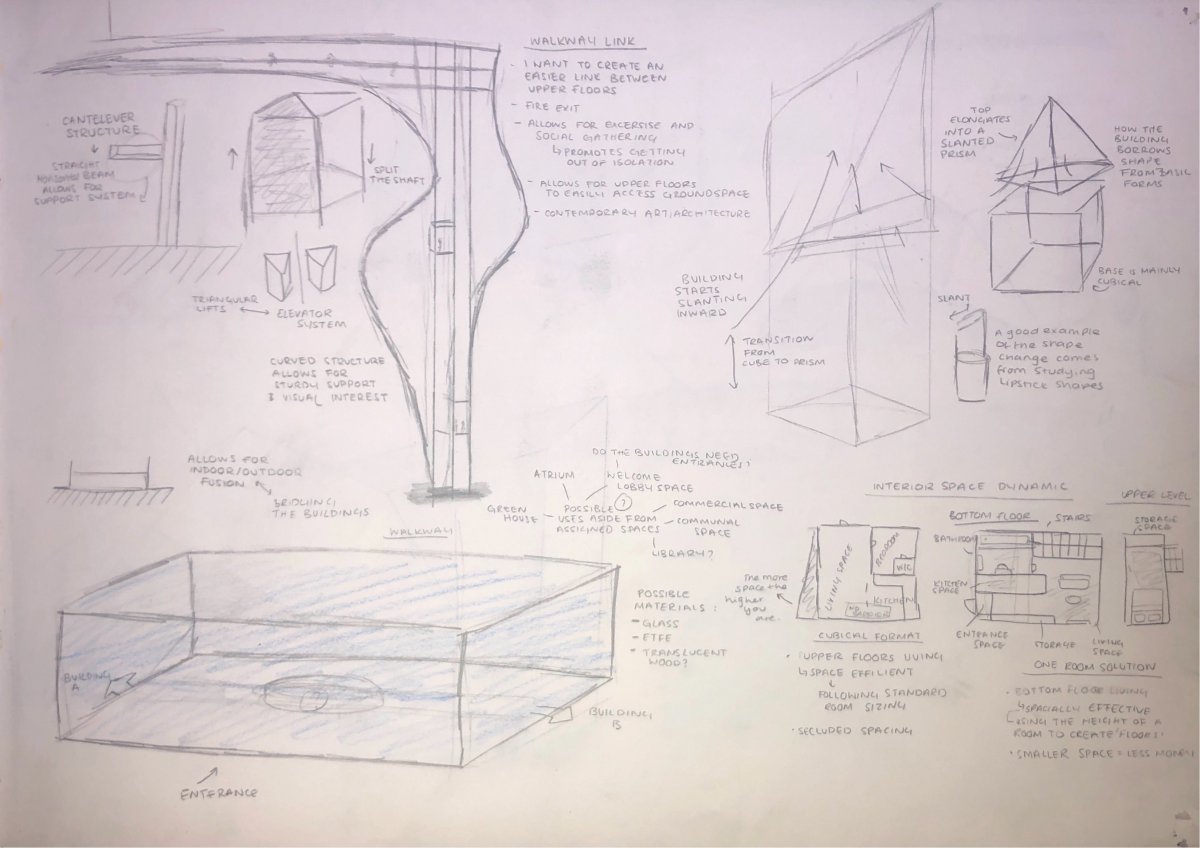 WALKWAY LINK
- I WANT TO CREATE AN
EASIER LINK BETWEEN
UPPER FLOORS
- FIRE EXIT
- ALLOWS FOR EXCERSISE AND
SOCIAL GATHERING
↳ PROMOTES GETTING
OUT OF ISOLATION
- ALLOWS FOR UPPER FLOORS
TO EASILY ACCESS GROUNDSPACE
- CONTEMPORARY ART/ARCHITECTURE
CANTELEVER
STRUCTURE
STRAIGHT
HORIZONTAL BEAM
ALLOWS FOR
SUPPORT SYSTEM
SPLIT
THE SHAFT
TRIANGULAR
LIFTS
ELEVATOR
SYSTEM
CURVED STRUCTURE
ALLOWS FOR
STURDY SUPPORT
& VISUAL INTEREST
TOP
ELONGATES
INTO A
SLANTED
PRISM
HOW THE
BUILDING
BORROWS
SHAPE
FROM BASIC
FORMS
BASE IS MAINLY
CUBICAL
BUILDING
STARTS
SLANTING
INWARD
TRANSITION
FROM
CUBE TO PRISM
SLANT
A good example
of the shape
change comes
from studying
lipstick shapes
ALLOWS FOR
INDOOR/OUTDOOR
FUSION
BRIDGING
THE BUILDINGS
DO THE BUILDINGS NEED
ENTRANCES?
ATRIUM
WELCOME
LOBBY SPACE
GREEN
HOUSE
POSSIBLE ?
USES ASIDE FROM
ASSIGNED SPACES
COMMERCIAL SPACE
COMMUNAL
SPACE
LIBRARY?
WALKWAY
BUILDING
A
?
BUILDING
B
ENTRANCE
POSSIBLE
MATERIALS:
- GLASS
- ETFE
- TRANSLUCENT
WOOD?
INTERIOR SPACE DYNAMIC
The more
space the
higher you
are.
LIVING SPACE
BEDROOM
W/C
KITCHEN
NO BARRIER
CUBICAL FORMAT
• UPPER FLOORS LIVING
↳ SPACE EFFICIENT
&
FOLLOWING STANDARD
ROOM SIZING
• SECLUDED SPACING
BOTTOM FLOOR
STAIRS
BATHROOM
KITCHEN
SPACE
ENTRANCE
SPACE
STORAGE
LIVING
SPACE
UPPER LEVEL
STORAGE
SPACE
ONE ROOM SOLUTION
• BOTTOM FLOOR LIVING
↳ SPACIALLY EFFECTIVE
USING THE HEIGHT OF A
ROOM TO CREATE 'FLOORS'
• SMALLER SPACE = LESS MONEY